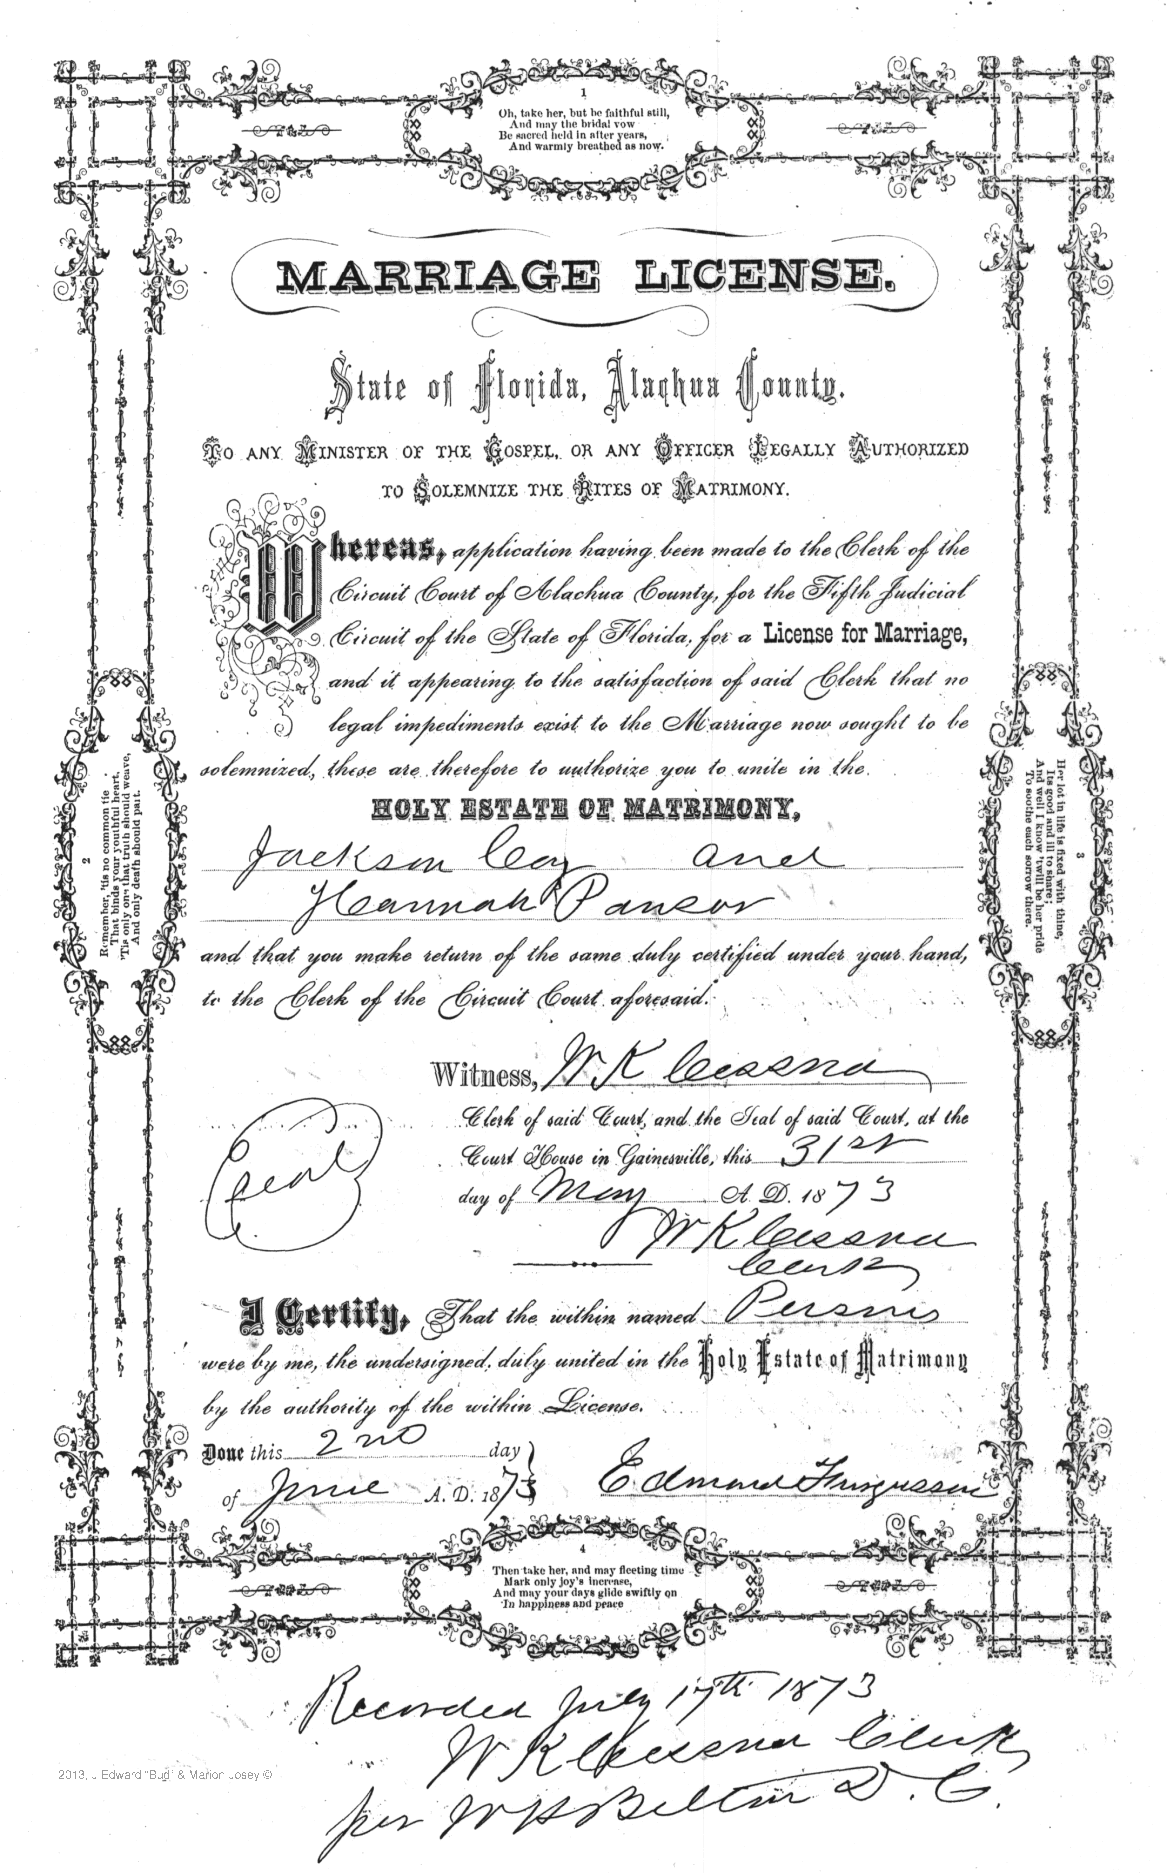 1
Oh, take her, but be faithful still,
And may the bridal vow
Be sacred held in after years,
And warmly breathed as now.
MARRIAGE LICENSE.
State of Florida, Alachua County.
TO ANY MINISTER OF THE GOSPEL, OR ANY OFFICER LEGALLY AUTHORIZED
TO SOLEMNIZE THE RITES OF MATRIMONY.
Whereas, application having been made to the Clerk of the
Circuit Court of Alachua County, for the Fifth Judicial
Circuit of the State of Florida, for a License for Marriage,
and it appearing to the satisfaction of said Clerk that no
legal impediments exist to the Marriage now sought to be
solemnized, these are therefore to authorize you to unite in the
HOLY ESTATE OF MATRIMONY,
Jackson Coy and
Hannah
and that you make return of the same duly certified under your hand,
to the Clerk of the Circuit Court aforesaid.
2
Remember, 'tis no common tie
That binds your youthful heart,
'Tis only one that truth should weave,
And only death should part.
3
Her lot in life is fixed with thine,
Its good and ill to share;
And well I know 'twill be her pride
To soothe each sorrow there.
Witness, W K Cessna
Clerk of said Court, and the Seal of said Court, at the
Court House in Gainesville, this 31st
day of May A. D. 1873
Seal
W K Cessna
Clerk
I Certify, That the within named Persons
were by me, the undersigned, duly united in the Holy Estate of Matrimony
by the authority of the within License.
Done this 2nd day
of June A. D. 1873
Edmond Furgusson
4
Then take her, and may fleeting time
Mark only joy's increase,
And may your days glide swiftly on
In happiness and peace
Recorded July 17th 1873
W K Cessna Clerk
per W H Belton D. C.
2013, J Edward "Bud" & Marion Josey ©